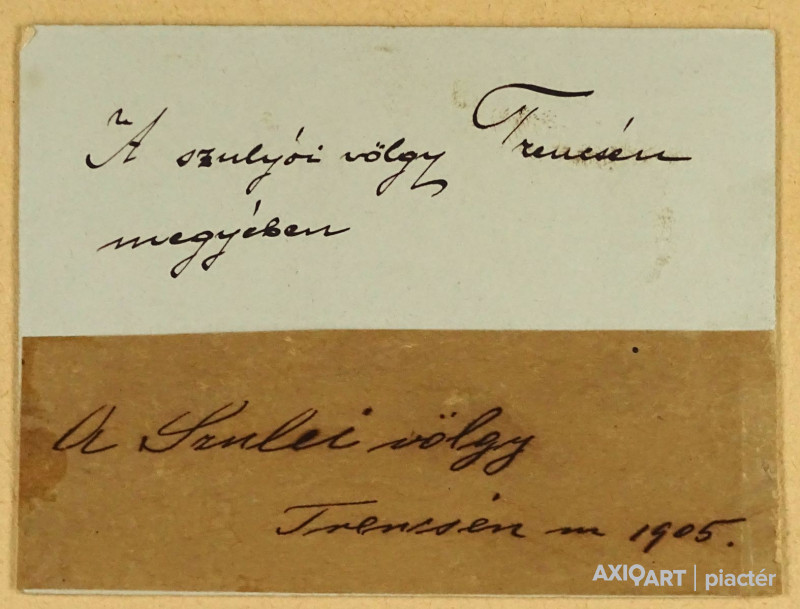 A szulyói völgy Trencsén
megyében
A Szulei völgy
Trencsén m 1905.
AXIOART | piactér